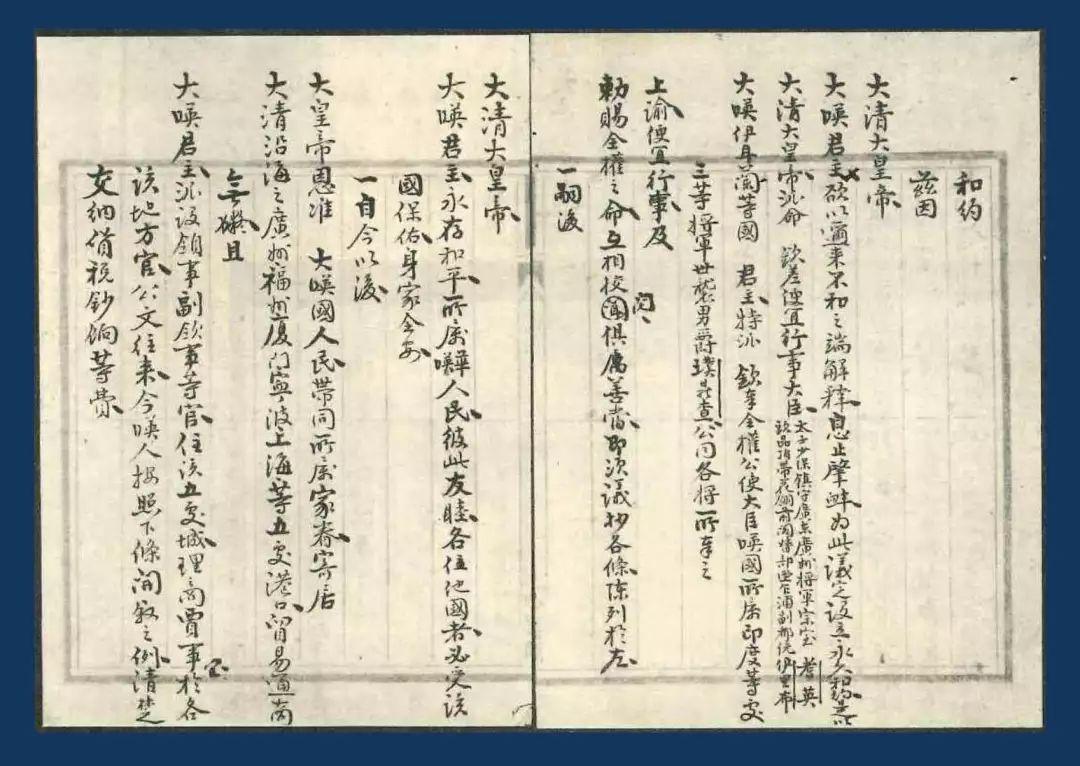 和約
茲因
大清大皇帝
大暎君主欲以邇来不和之端解釋息止肇衅為此議定設立永久和約是以
大清大皇帝派命 欽差便宜行事大臣 太子少保鎮守廣東廣州將軍宗室耆英
頂帶花翎前閣督部堂乍浦副都統伊里布
大暎伊耳蘭等國 君主特派 欽奉全權公使大臣暎國所屬印度等處
三等將軍世襲男爵璞鼎查公同各將所奉之
上諭便宜行事及
勅賜全權之命互相挍閱俱屬善當即須議抄各條陳列於左
一嗣後
大清大皇帝
大暎君主永存和平所屬嘩暎人民彼此友睦各住他國者必受該
國保佑身家全安
一自今以後
大皇帝恩准 大暎國人民帶同所屬家眷寄居
大清沿海之廣州福州厦門寧波上海等五處港口貿易通商
無礙且
大暎君主派設領事副領事等官住該五處城理商賈事於各
該地方官公文往来今暎人按照下條開敘之例清楚
交納偹税鈔餉等費